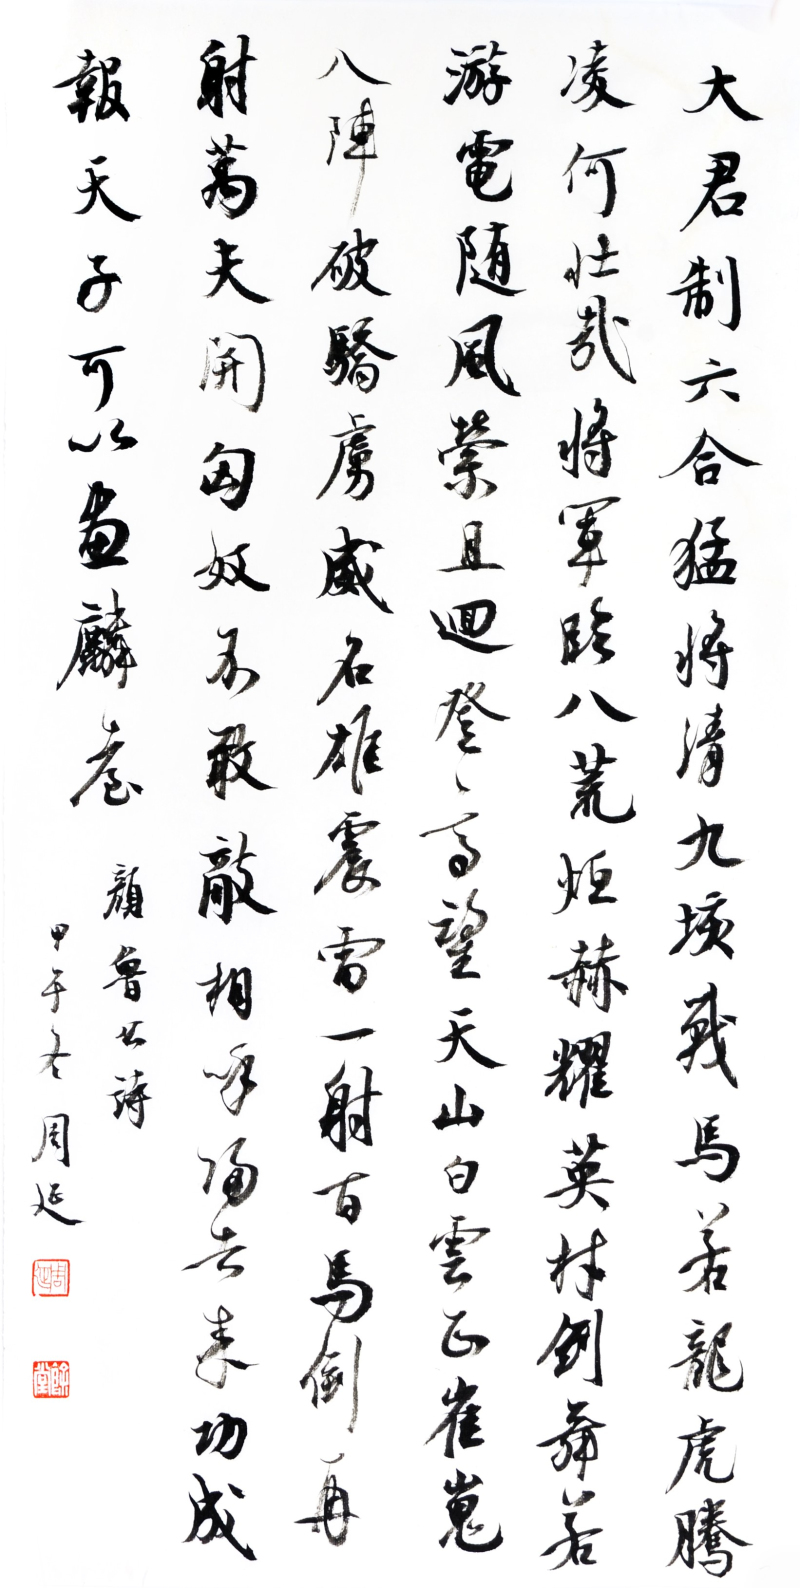 大君制六合猛將清九垓戰馬若龍虎騰
凌何壯哉將軍臨八荒烜赫耀英材劍舞若
游電随風縈且迴登〻高望天山白雲正崔嵬
入陣破驕虜威名雄震雷一射百馬倒再
射萬夫開匈奴不敢敵相呼歸去來功成
報天子可以畫麟臺
顏魯公詩
甲午冬周延
周延